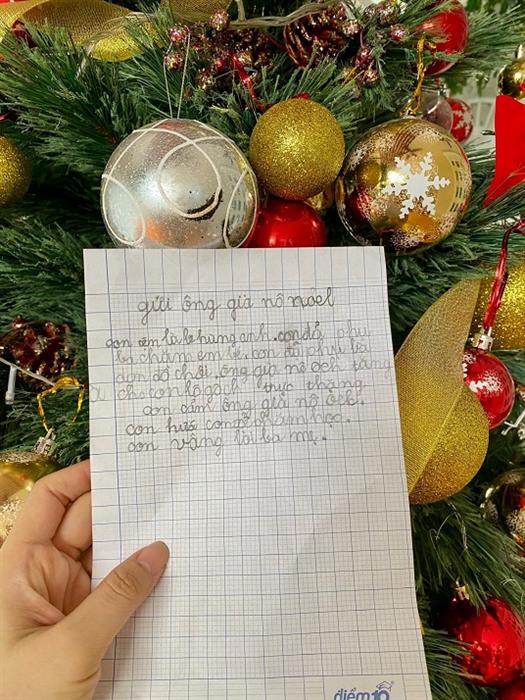 gửi ông già nô noel
con tên là hùng anh. con đã phụ
bà chăm em bé. con đã phụ bà
dọn đồ chơi. ông già nô ốch tặng
cho con lô gách trực thăng
con cảm ông già nô ốch.
con hứa con sẽ chăm học.
con vâng lời ba mẹ.
điểm10